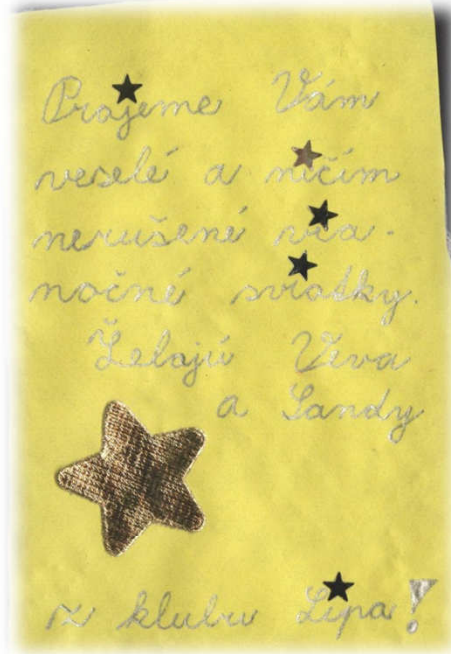 Prajeme Vám
veselé a ničím
nerušené via-
nočné sviatky.
Želajú Viva
a Sandy
z klubu Lipa!